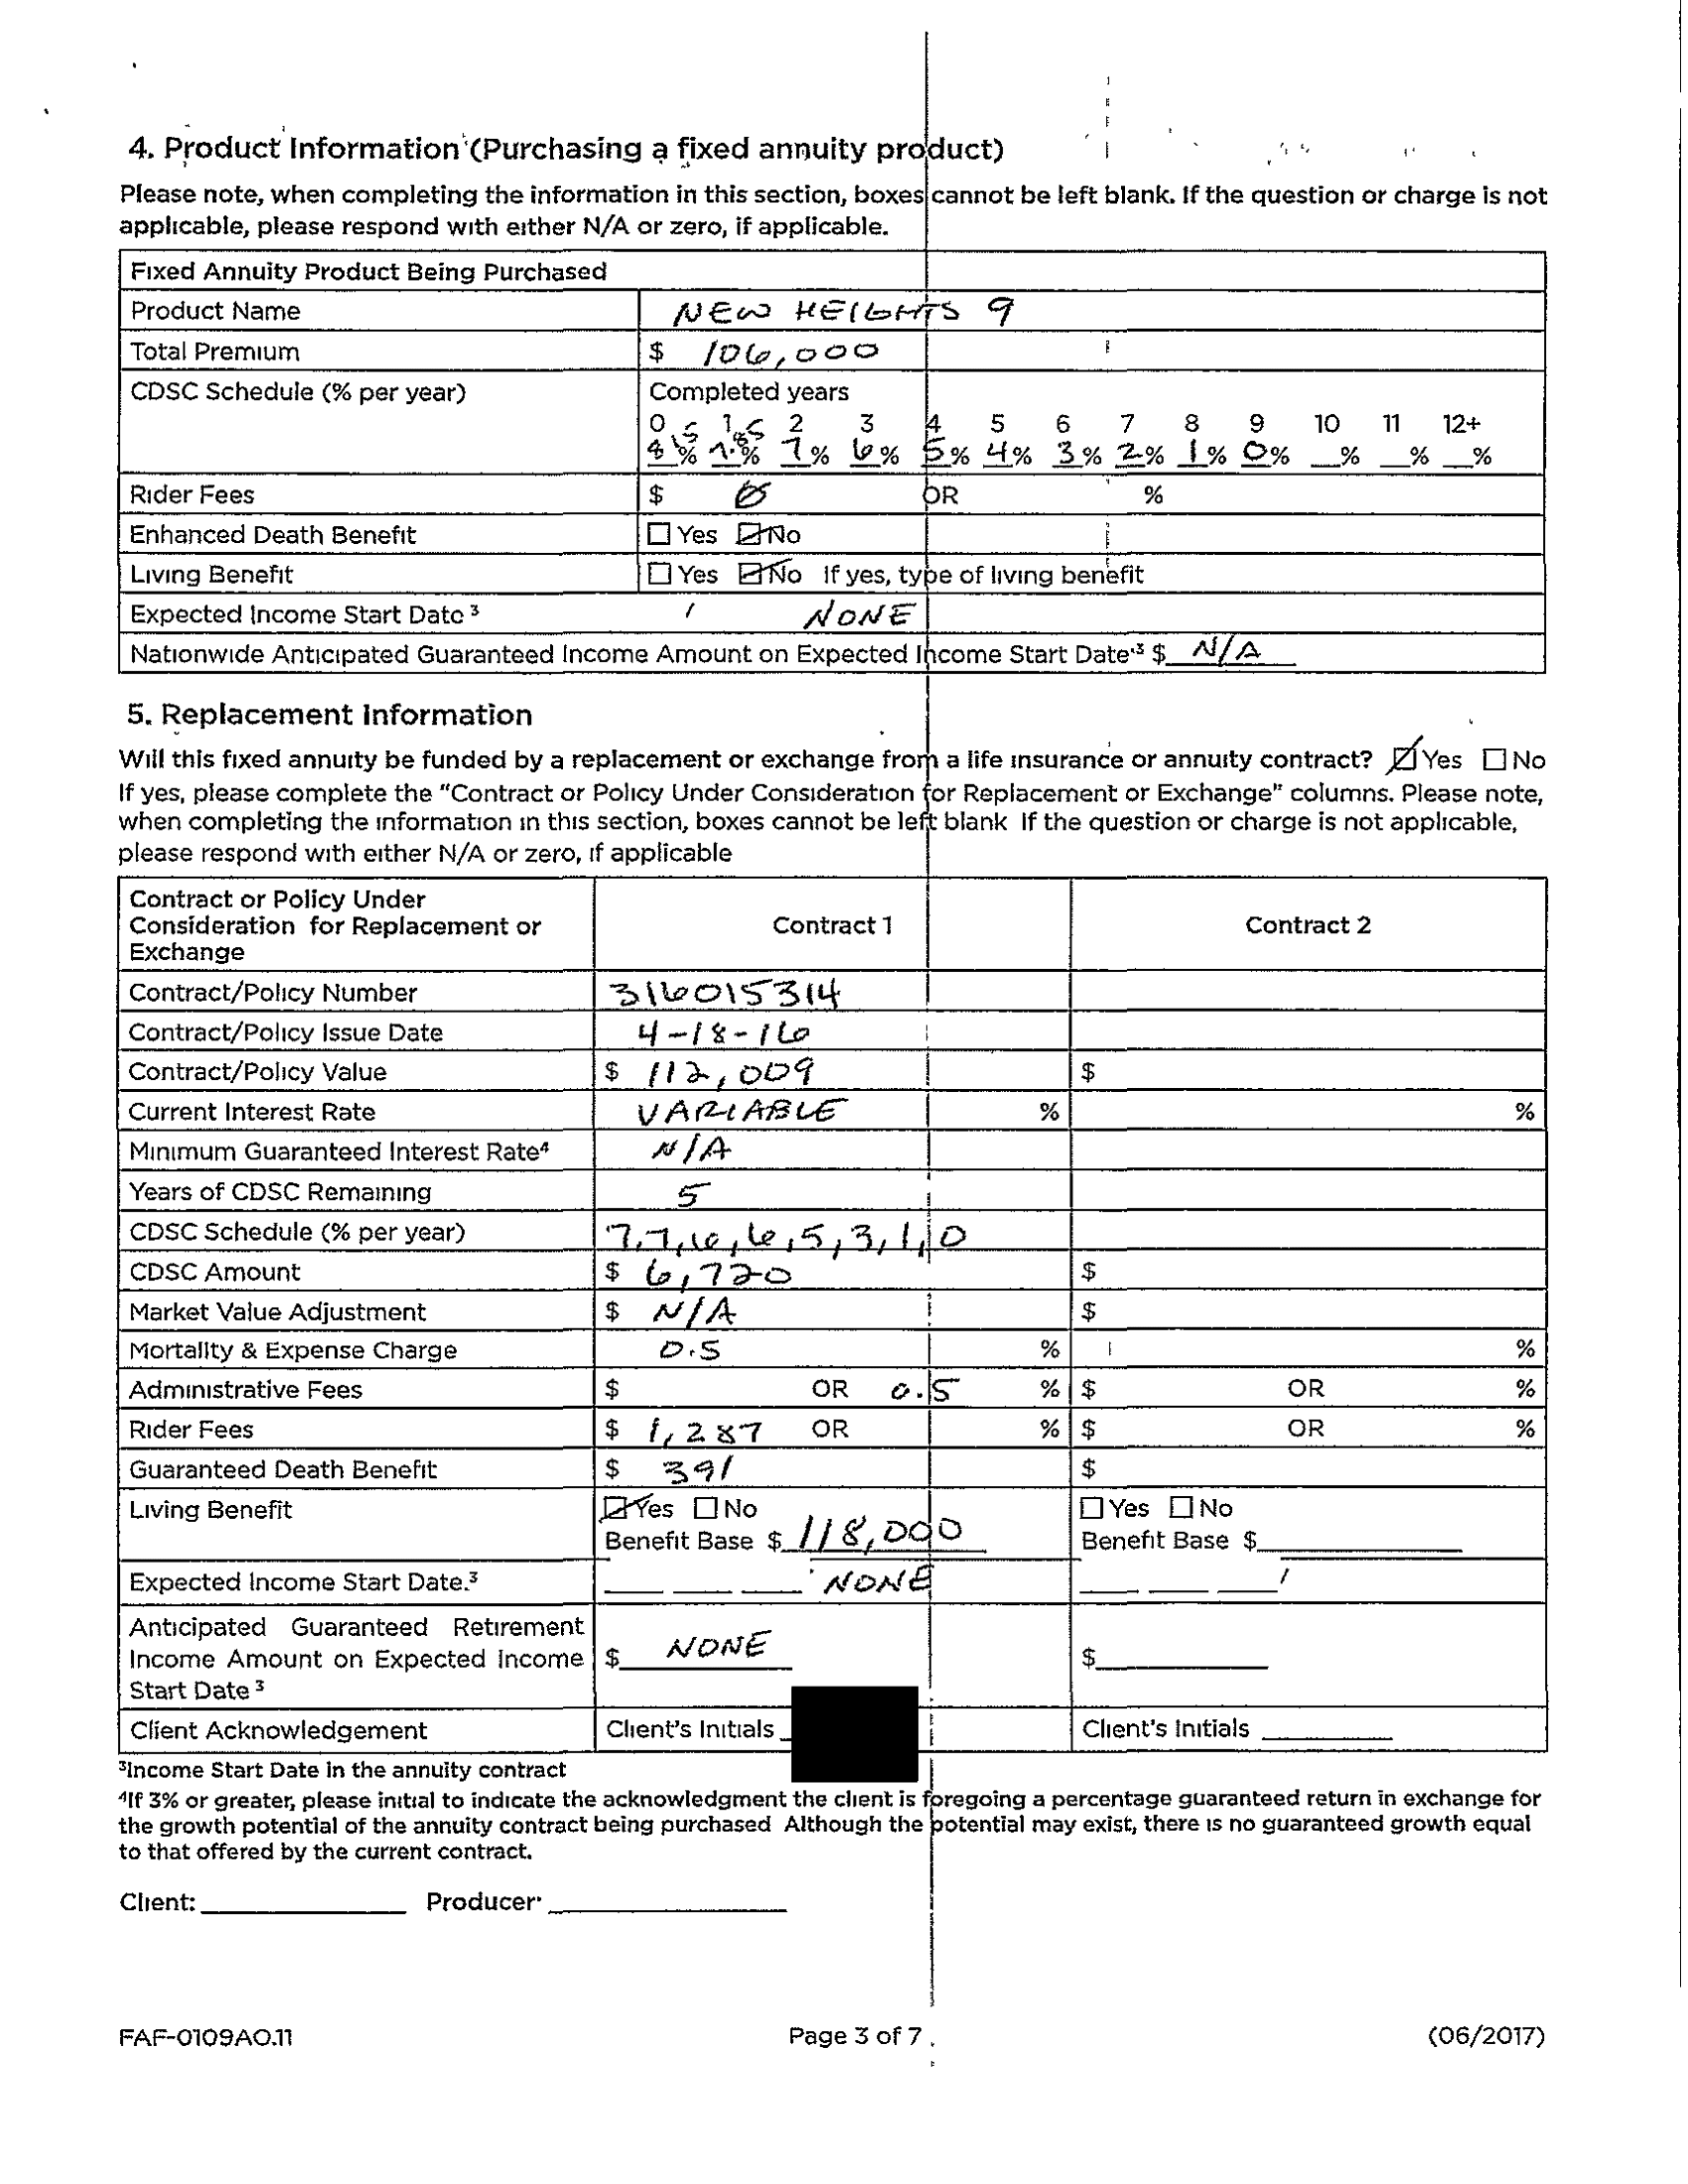 4. Product Information (Purchasing a fixed annuity product)
Please note, when completing the information in this section, boxes cannot be left blank. If the question or charge is not
applicable, please respond with either N/A or zero, if applicable.
Fixed Annuity Product Being Purchased
Product Name NEW HEIGHTS 9
Total Premium $ 106,000
CDSC Schedule (% per year) Completed years
0 1 2 3 4 5 6 7 8 9 10 11 12+
% % 7% 6% 5% 4% 3% 2% 1% 0% _% _% _%
Rider Fees $ 0 OR %
Enhanced Death Benefit ☐ Yes ☑ No
Living Benefit ☐ Yes ☑ No If yes, type of living benefit
Expected Income Start Date 3 NONE
Nationwide Anticipated Guaranteed Income Amount on Expected Income Start Date:3 $ N/A
5. Replacement Information
Will this fixed annuity be funded by a replacement or exchange from a life insurance or annuity contract? ☑ Yes ☐ No
If yes, please complete the "Contract or Policy Under Consideration for Replacement or Exchange" columns. Please note,
when completing the information in this section, boxes cannot be left blank If the question or charge is not applicable,
please respond with either N/A or zero, if applicable
Contract or Policy Under
Consideration for Replacement or Contract 1 Contract 2
Exchange
Contract/Policy Number 316015314
Contract/Policy Issue Date 4-18-16
Contract/Policy Value $ 112,009 $
Current Interest Rate VARIABLE % %
Minimum Guaranteed Interest Rate4 N/A
Years of CDSC Remaining 5
CDSC Schedule (% per year) 7,7,6,6,5,3,1,0
CDSC Amount $ 6,720 $
Market Value Adjustment $ N/A $
Mortality & Expense Charge 0.5 % %
Administrative Fees $ OR 0.5 % $ OR %
Rider Fees $ 1,287 OR % $ OR %
Guaranteed Death Benefit $ 391 $
Living Benefit ☑ Yes ☐ No ☐ Yes ☐ No
Benefit Base $ 118,000 Benefit Base $
Expected Income Start Date.3 NONE
Anticipated Guaranteed Retirement
Income Amount on Expected Income $ NONE $
Start Date 3
Client Acknowledgement Client's Initials Client's Initials
3Income Start Date in the annuity contract
4If 3% or greater, please initial to indicate the acknowledgment the client is foregoing a percentage guaranteed return in exchange for
the growth potential of the annuity contract being purchased Although the potential may exist, there is no guaranteed growth equal
to that offered by the current contract.
Client: Producer
FAF-0109AO.11 Page 3 of 7 (06/2017)